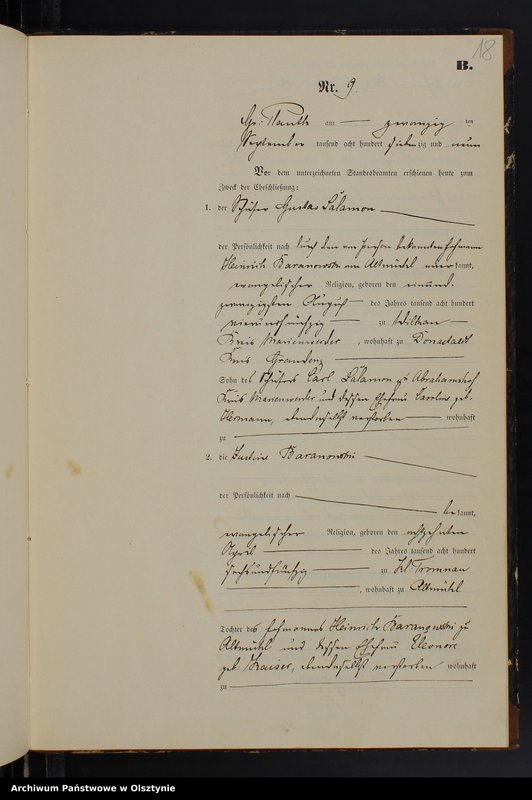 18
B.
Nr. 9.
Gr: Nauth am — zwanzig ten
September tausend acht hundert siebenzig und neun
Vor dem unterzeichneten Standesbeamten erschienen heute zum
Zweck der Eheschließung:
1. der Gustav Salamon
der Persönlichkeit nach durch den von Person bekannten
Heinrich Baranowski aus Altmühl kannt,
evangelischer Religion, geboren den einund-
zwanzigsten August des Jahres tausend acht hundert
vierundfünfzig zu
Kreis Marienwerder, wohnhaft zu
Kreis Graudenz
Sohn des Carl Salamon zu Abrahamshof
Kreis Marienwerder und dessen Ehefrau Caroline geb.
Hermann, daselbst verstorben wohnhaft
zu
2. die Justine Baranowski
der Persönlichkeit nach
be kannt,
evangelischer Religion, geboren den achtzehnten
April des Jahres tausend acht hundert
sechsundfünfzig zu Kl: Tromnau
, wohnhaft zu Altmühl
Tochter des Heinrich Baranowski zu
Altmühl und dessen Ehefrau Eleonore
geb. Kaiser, daselbst verstorben wohnhaft
zu
Archiwum Państwowe w Olsztynie